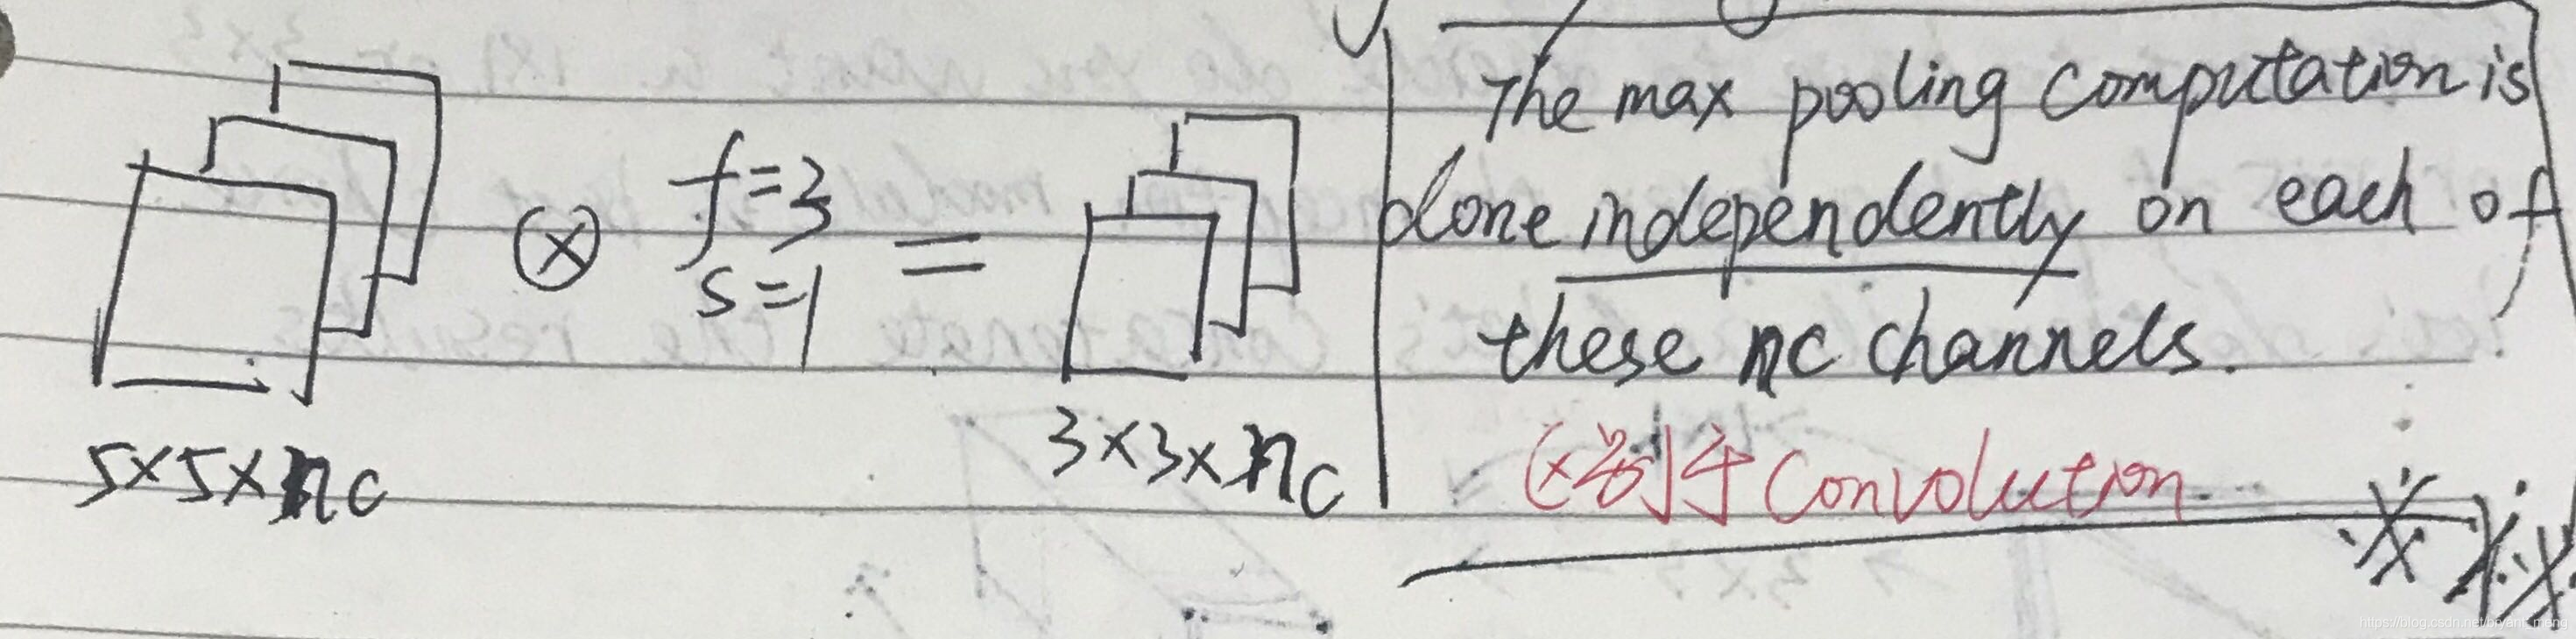 f=3
s=1
=
5×5×nc
3×3×nc
The max pooling computation is
done independently on each of
these nc channels.
区别于 Convolution.
https://blog.csdn.net/bryant_meng